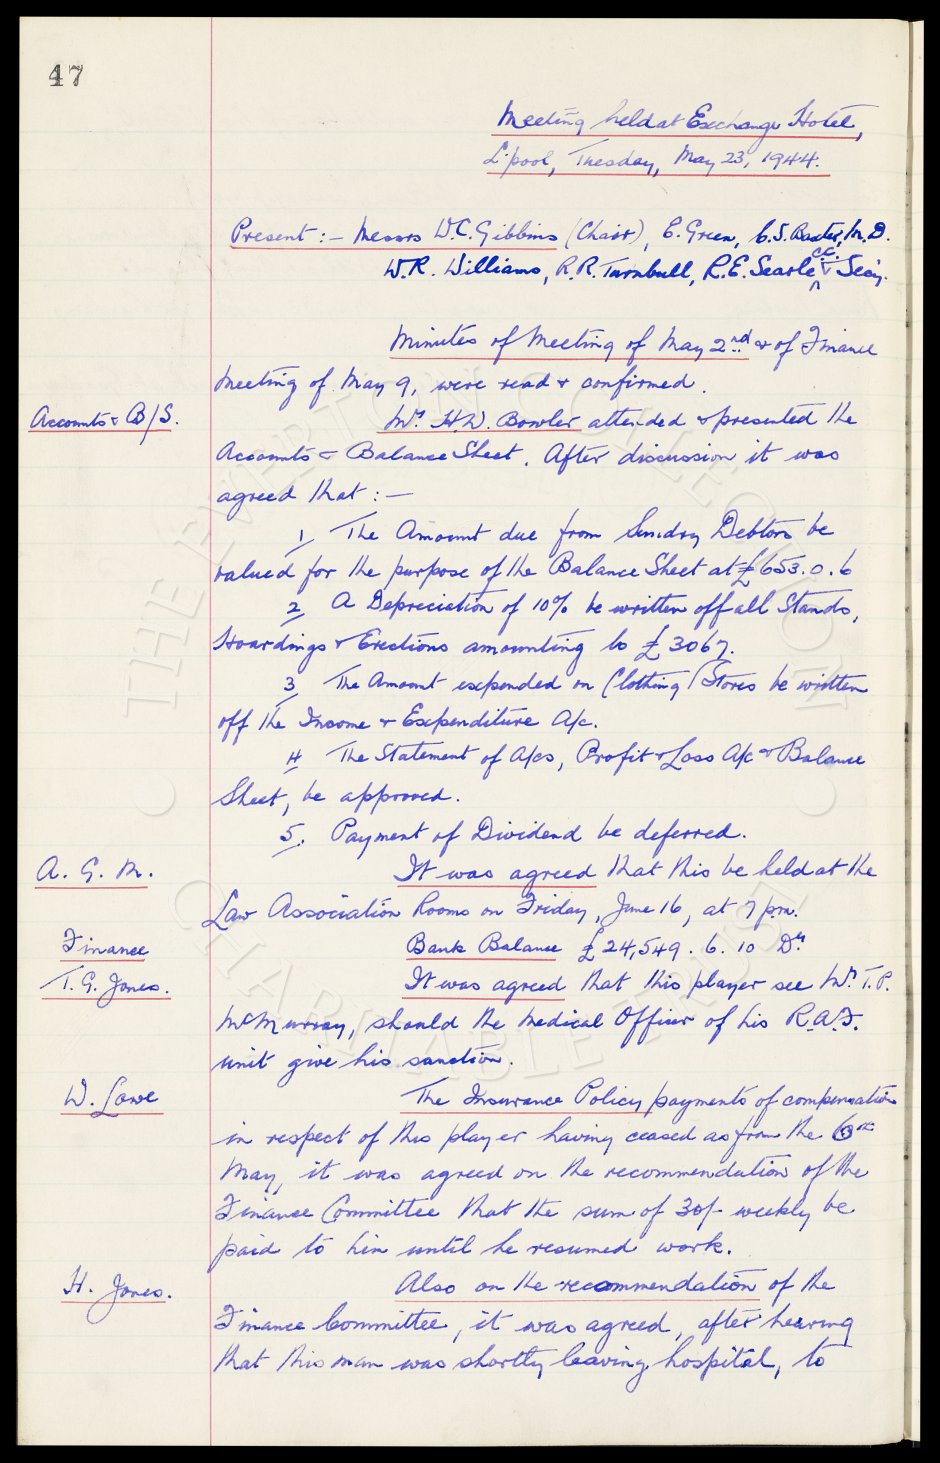 47
Meeting held at Exchange Hotel,
L'pool, Tuesday, May 23, 1944.
Present :- Messrs W.C. Gibbins (Chair), E. Green, C.S. Baxter, M.D.
W.R. Williams, R.R. Turnbull, R.E. Searle & Secy.
Minutes of Meeting of May 2nd & of Finance
Meeting of May 9, were read & confirmed.
Accounts & B/S.
Mr. H.W. Bowler attended & presented the
Accounts & Balance Sheet. After discussion it was
agreed that :-
1 The Amount due from Sundry Debtors be
valued for the purpose of the Balance Sheet at £653.0.6
2 A Depreciation of 10% be written off all Stands,
Hoardings & Erections amounting to £3067.
3 The Amount expended on Clothing/Stores be written
off the Income & Expenditure A/c.
4 The Statement of A/cs, Profit & Loss A/c & Balance
Sheet, be approved.
5. Payment of Dividend be deferred.
A. G. M.
It was agreed that this be held at the
Law Association Rooms on Friday, June 16, at 7 p.m.
Finance
Bank Balance £24,549. 6. 10 Dr.
T.G. Jones.
It was agreed that this player see Mr. T.P.
McMurray, should the Medical Officer of his R.A.F.
unit give his sanction.
W. Lowe
The Insurance Policy payments of compensation
in respect of this player having ceased as from the 6th
May, it was agreed on the recommendation of the
Finance Committee that the sum of 30/- weekly be
paid to him until he resumed work.
H. Jones.
Also on the recommendation of the
Finance Committee, it was agreed, after hearing
that this man was shortly leaving hospital, to
THE EVERTON COLLECTION
CHARITABLE TRUST